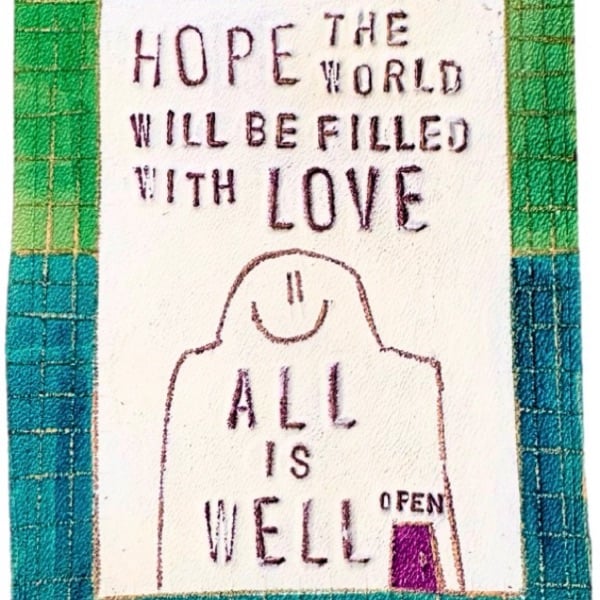 HOPE THE
WORLD
WILL BE FILLED
WITH LOVE
ALL
IS
WELL
OPEN